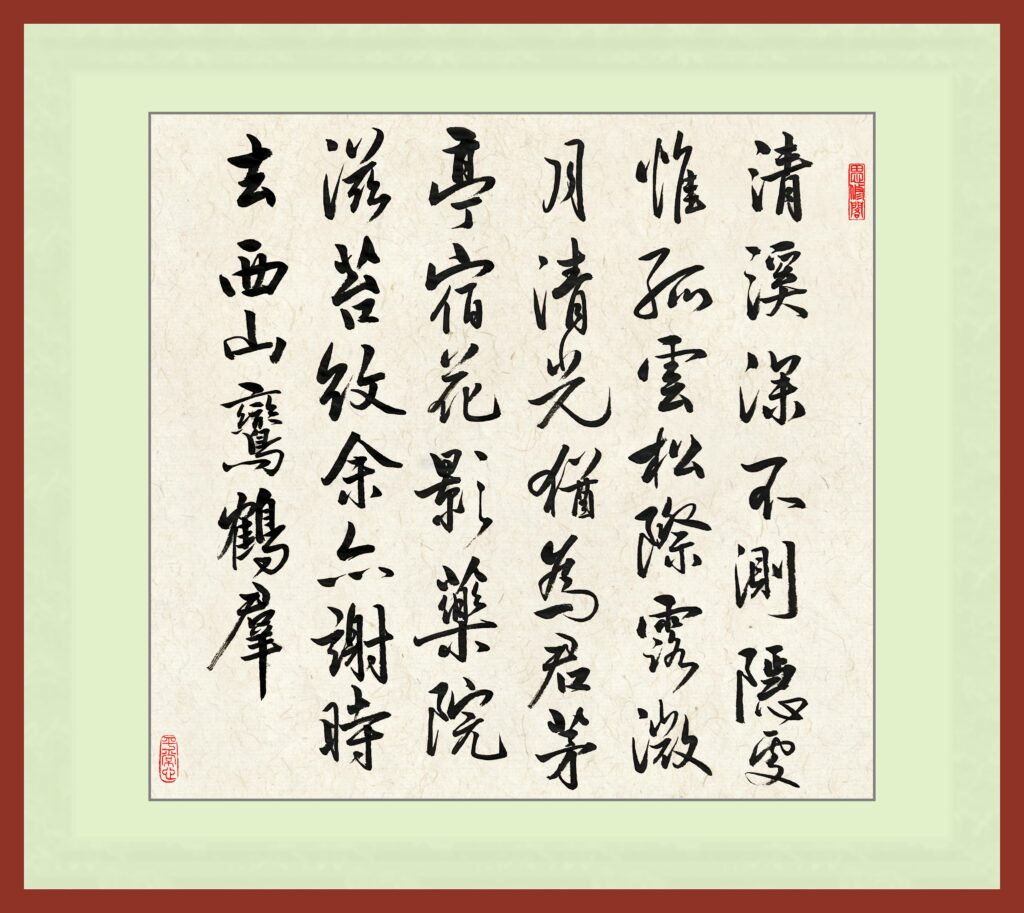 清溪深不測隱處
惟孤雲松際露微
月清光猶為君茅
亭宿花影藥院
滋苔紋余亦謝時
去西山鸞鶴羣
平常心